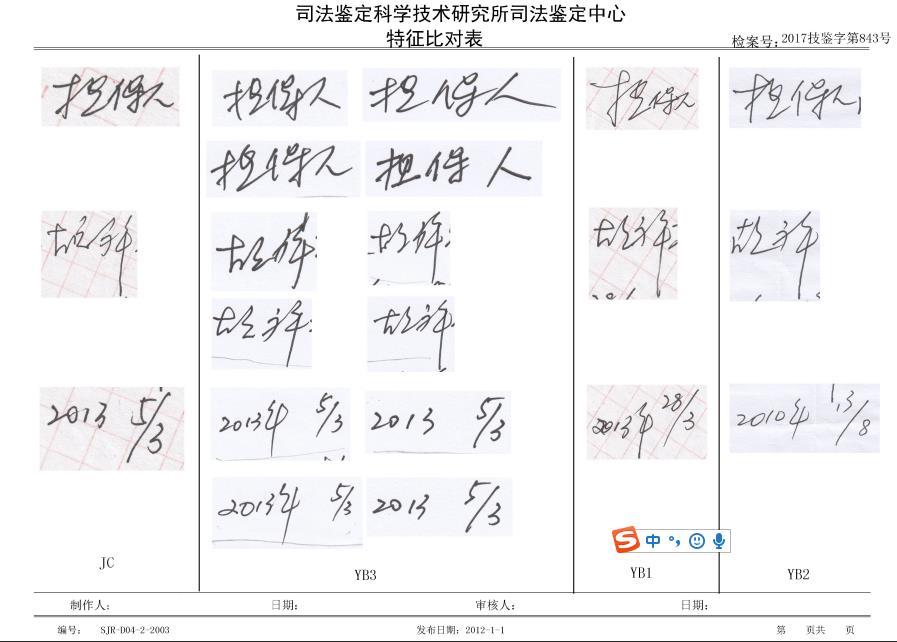 司法鉴定科学技术研究所司法鉴定中心
特征比对表
检案号：2017技鉴字第843号
担保人 担保人 担保人 担保人 担保人
担保人 担保人
2013 5/3 2013年 5/3 2013 5/3 2013年 28/3 2010年 13/8
2013年 5/3 2013 5/3
中
JC YB3 YB1 YB2
制作人： 日期： 审核人： 日期：
编号： SJR-D04-2-2003 发布日期：2012-1-1 第 页共 页